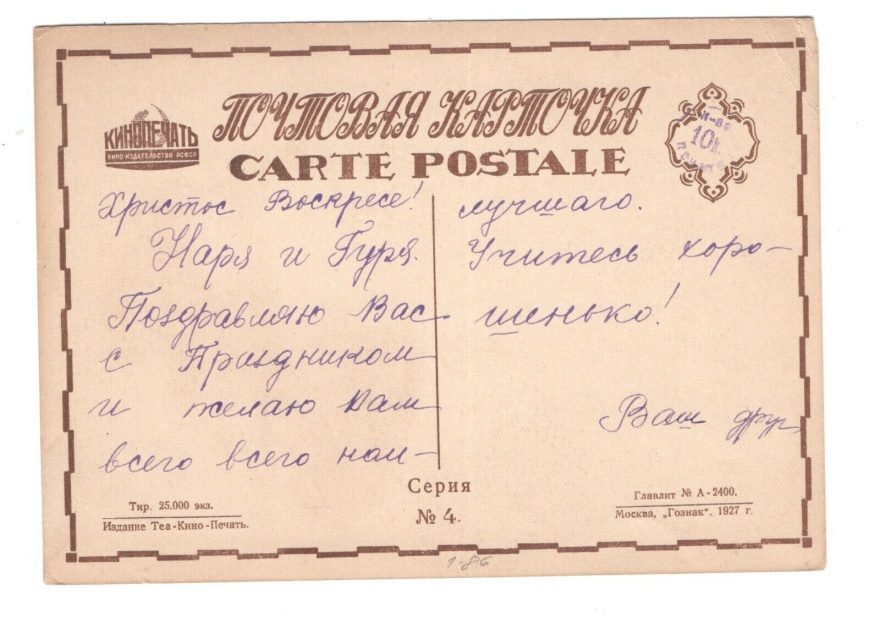 КИНОПЕЧАТЬ
КИНО-ИЗДАТЕЛЬСТВО РСФСР
ПОЧТОВАЯ КАРТОЧКА
CARTE POSTALE
10к.
Христос Воскресе!
Наря и Гуря.
Поздравляю Вас
с Праздником
и желаю Вам
всего всего наи-
лучшаго.
Учитесь хоро-
шенько!
Ваш друг
Тир. 25.000 экз.
Издание Теа-Кино-Печать.
Серия
№ 4.
Главлит № А-2400.
Москва, „Гознак". 1927 г.
1-85